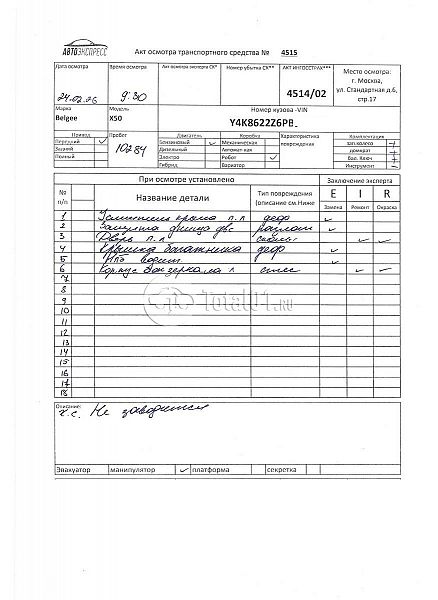 АВТОЭКСПРЕСС
Акт осмотра транспортного средства № 4515
Дата осмотра Время осмотра Акт осмотра эксперта СК* Номер убытка СК** АКТ ИНГОССТРАХ***
Место осмотра:
г. Москва,
ул. Стандартная д.6,
стр.17
24.02.26 9:30 4514/02
Марка Модель Номер кузова -VIN
Belgee X50 Y4K8622Z6PB
Привод Пробег Двигатель Коробка Характеристика повреждения Комплектация
Передний ✓ Бензиновый ✓ Механическая зап.колесо
Задний 10284 Дизельный Автомат-кая домкрат
Полный Электро Робот ✓ бал. Ключ
Гибрид Вариатор Инструмент
При осмотре установлено Заключение эксперта
№ п/п Название детали Тип повреждения (описание см.Ниже E I R
Замена Ремонт Окраска
1 п.л деф ✓
2 Защита днища двс ✓
3 Дверь п.л ✓ ✓
4 Крышка багажника деф ✓
5 ✓
6 Корпус л ✓ ✓
7
8
9
10
11
12
13
14
15
16
17
18
Total01.ru
Описание:
Не заводится
Эвакуатор манипулятор ✓ платформа секретка